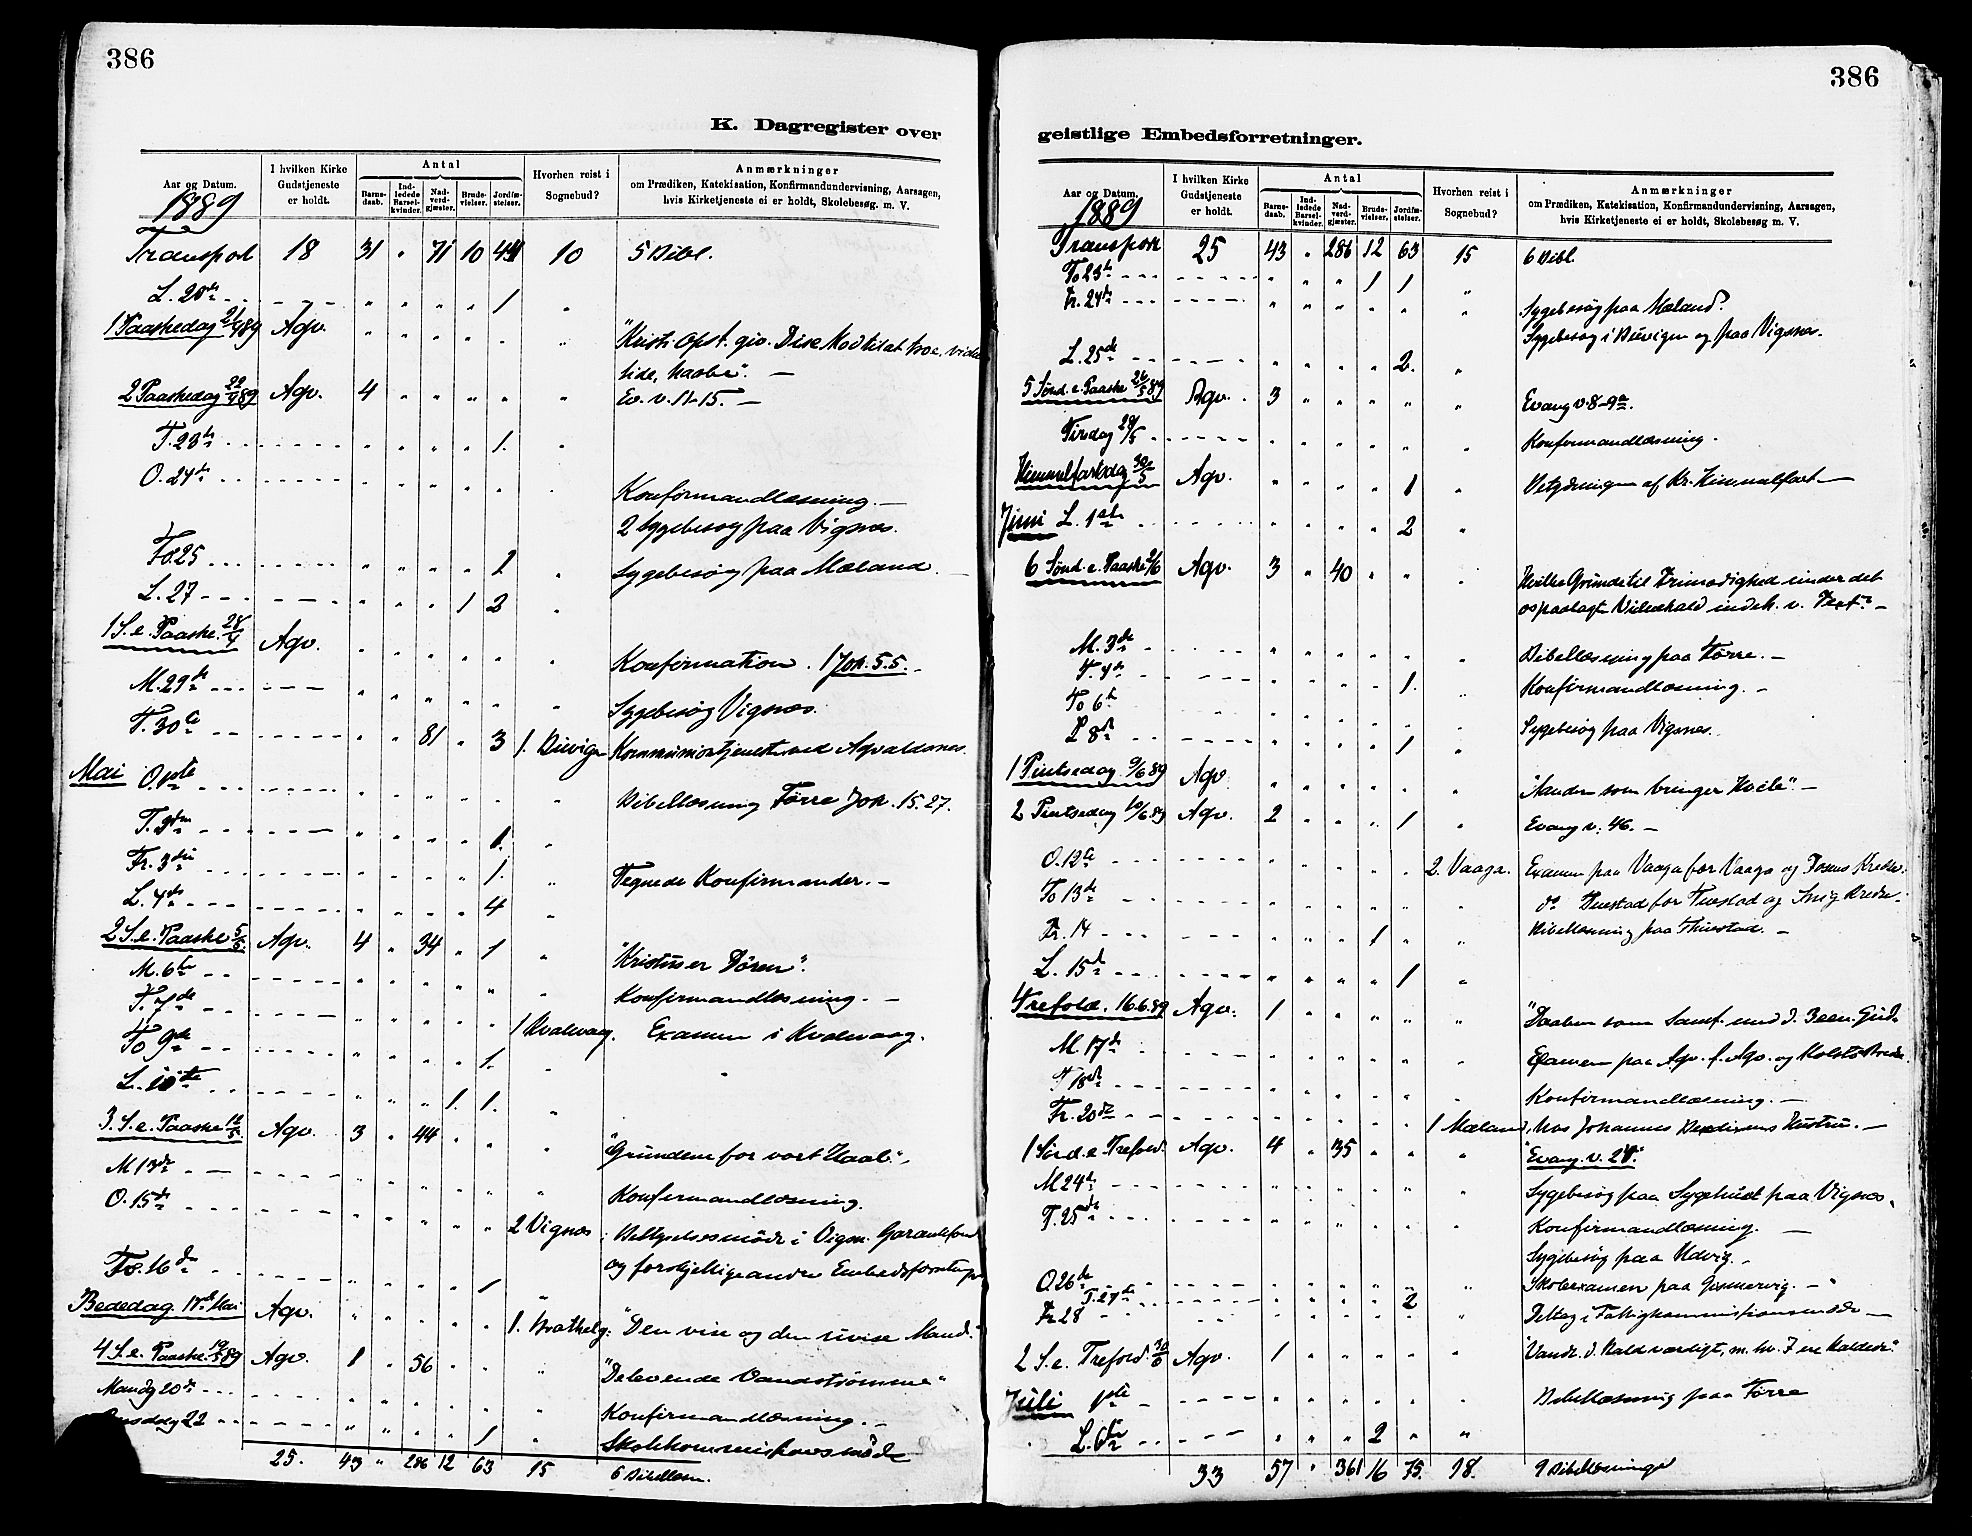 386
K. Dagregister over
Aar og Datum. I hvilken Kirke Gudstjeneste er holdt. Antal Barnedaab. Indledede Barselkvinder. Nadverdgjæster. Brudevielser. Jordfæstelser. Hvorhen reist i Sognebud? Anmærkninger om Prædiken, Katekisation, Konfirmandundervisning, Aarsagen, hvis Kirketjeneste ei er holdt, Skolebesøg. m. V.
1889
Transport 18 31 " 71 10 44 10 5 Bibl.
L. 20de " " " " 1 "
1 Paaskedag 21/4 89 Agv. " " " " " " "Kristi Opst. giv.
tide, haabe". —
2 Paaskedag 22/4 89 Agv. 4 " " " " " Ev. v. 11-15. —
T. 23de " " " " 1. "
O. 24de " " " " " " Konfirmandlæsning. —
2 Sygebesøg paa Vigsnæs.
To. 25 " " " " 1 " Sygebesøg paa Mæland. —
L. 27 " " " 1 2 "
1 S. e. Paaske. 28/4 Agv. " " " " " " Konfirmation. 1 Joh. 5.5. —
M. 29de " " " " " " Sygebesøg Vigsnæs.
T. 30te " " 81 " 3 1. Duvigen Kommuniontjeneste ved Agvaldsnes.
Mai O. 1ste " " " " " " Bibellæsning Førre Joh. 15.27.
T. " " " " 1. "
Fr. 3die " " " " 1. " Tegnede Konfirmander. —
L. 4de " " " " 4 "
2 S. e. Paaske 5/5 Agv. 4 " 34 " 1 " "Kristus er Døren".
M. 6te " " " " " " Konfirmandlæsning. —
T. 7de " " " " " 1 Kvalevaag. Examen i Kvalevaag.
To 9de " " " " 1. "
L. " " " 1. 1. "
3. S. e. Paaske 12/5 Agv. 3 " 44 " " " "Grundene for vort Haab". —
M 13de " " " " " " Konfirmandlæsning.
O. 15de " " " " " 2 Vigsnæs Vigsn.
og forskjellige andre
To. 16de " " " " 1 "
Bededag. 17de Mai Agv. " " " " " 1. "Den vise og den uvise Mand."
4 S. e. Paaske 19/5 89 Agv. 1 " 56 " " " "De levende Vandstrømme"
Mandg 20de " " " " " " Konfirmandlæsning. —
Onsdag 22 " " " " 1 " Skolekommissionsmøde
25. 43 " 286 12 63 15 6 Bibellæsn.
386
geistlige Embedsforretninger.
Aar og Datum. I hvilken Kirke Gudstjeneste er holdt. Antal Barnedaab. Indledede Barselkvinder. Nadverdgjæster. Brudevielser. Jordfæstelser. Hvorhen reist i Sognebud? Anmærkninger om Prædiken, Katekisation, Konfirmandundervisning, Aarsagen, hvis Kirketjeneste ei er holdt, Skolebesøg m. V.
1889
Transport 25 43 " 286 12 63 15 6 Bibl.
To 23de " " " 1 1 " Sygebesøg paa Mæland.
Fr. 24de " " " " " " Sygebesøg i Duvigen og paa Vigsnæs.
L. 25de " " " " 2. "
5 Sønd. e. Paaske 26/5 89 Agv. 3 " " " " " Evang. v. 8-9de.
Tirsdag 28/5 " " " " " " Konfirmandlæsning.
Himmelfartsdag 30/5 Agv. " " " " 1 " Betydningen af Kr. Himmelfart —
Juni L. 1ste " " " " 2 "
6 Sønd. e. Paaske 2/6 Agv. 3 " 40 " " " Hvilke Grunde til Frimodighed under det
os paalagte Vidnehald indeh. v. Text. —
M. 3de " " " " " " Bibellæsning paa Førre. —
T. 4de " " " " 1. " Konfirmandlæsning. —
To 6te " " " " " " Sygebesøg paa Vigsnæs.
L 8de " " " " 1 "
1 Pintsedag 9/6 89 Agv. " " " " " " "Aanden som bringer Hvile". —
2 Pintsedag 10/6 89 Agv. 2 " " " 1 " Evang v. 46. —
O. 12te " " " " " 2. Vaaga. Examen paa Vaaga for Vaaga og Kredse.
To 13de " " " " " " do
Fr. 14 " " " 1 " " Bibellæsning paa —
L. 15de " " " " 1 "
Trefold. 16.6.89 Agv. 1 " " " " " "Daaben som Samf. med d. 3een. Gud.
M. 17de " " " " " " Examen paa Agv. f. Agv. og
T 18de " " " " " " Konfirmandlæsning. —
Fr. 20de " " " " " 1 Mæland, hos Johannes Hustru. —
1 Sønd. e. Trefold. Agv. 4 " 35 " " " "Evang. v.
M 24de " " " " " " Sygebesøg paa Sygehuset paa Vigsnæs.
T. 25de " " " " " " Konfirmandlæsning. —
Sygebesøg paa Udvig. —
O. 26de " " " " " " Skoleexamen paa Gismervig. —
T. 27de " " " " 2 "
Fr 28 " " " " " " Deltog i Fattigkommissionsmøde —
2 S. e. Trefold. 30/6 Agv. 1 " " " " "
Juli 1ste " " " " " " Bibellæsning paa Førre
L. 6te " " " 2 " "
33 57 " 361 16 75. 18. 9 Bibellæsninger